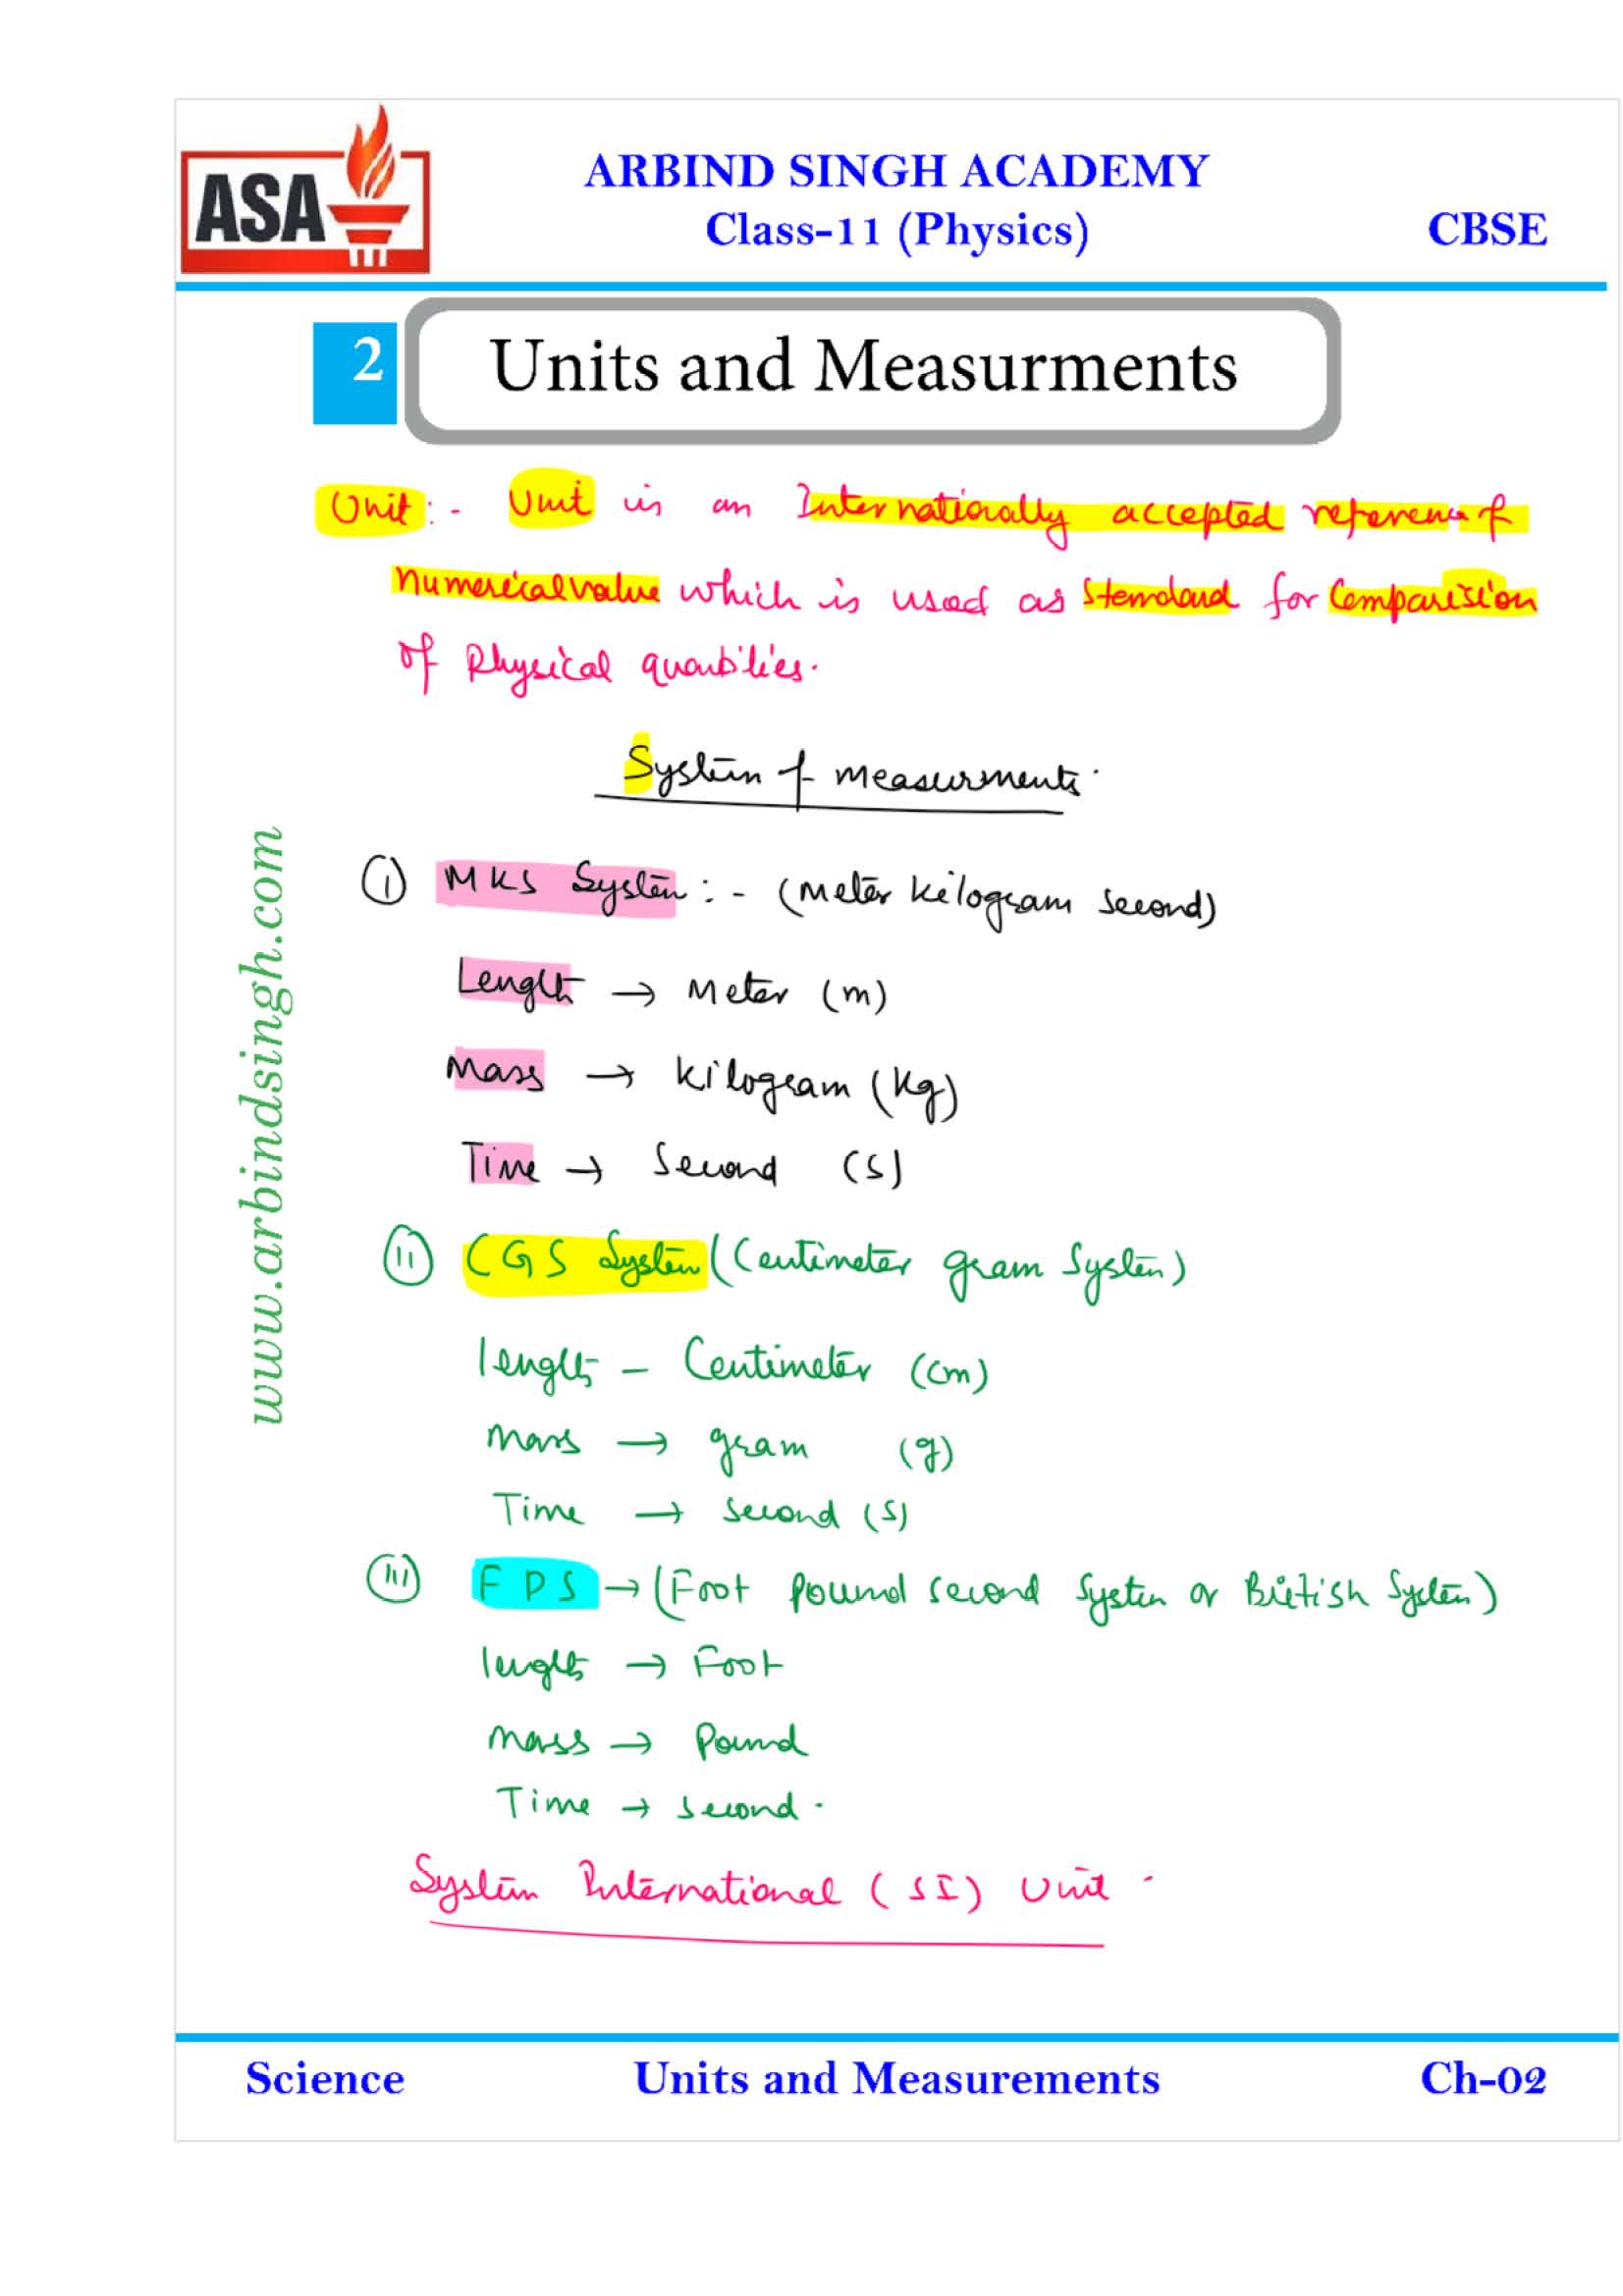 ASA
ARBIND SINGH ACADEMY
Class-11 (Physics)
CBSE
2
Units and Measurments
Unit :- Unit is an Internationally accepted reference of
Numerical value which is used as standard for Comparision
of Physical quantities.
System of measurments.
(i) MKS System :- (Meter kilogram second)
Length → Meter (m)
Mass → kilogram (kg)
Time → Second (s)
(ii) CGS System (Centimeter gram System)
length - Centimeter (cm)
mass → gram (g)
Time → second (s)
(iii) FPS → (Foot pound second system or British System)
length → Foot
mass → Pound
Time → second.
System International (SI) Unit.
www.arbindsingh.com
Science
Units and Measurements
Ch-02